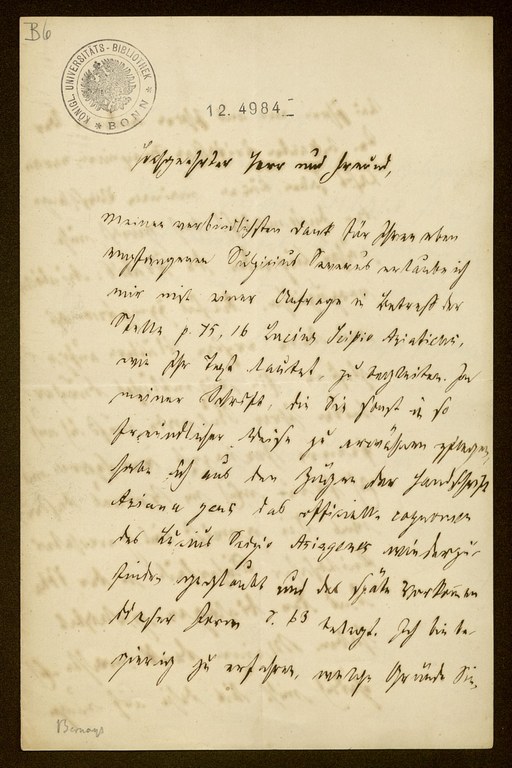 B6
KÖNIGL. UNIVERSITÄTS-BIBLIOTHEK * BONN *
12. 4984.
Hochgeehrter Herr und Freund,
Meinen verbindlichsten Dank für Ihren eben
empfangenen Sulpicius Severus erlaube ich
mir mit einer Anfrage in Betreff der
Stelle p. 75, 16 Lucius Scipio Asiaticus,
wie Ihr Text lautet, zu begleiten. In
meiner Schrift, die Sie sonst in so
freundlicher Weise zu erwähnen pflegen,
habe ich aus den Zügen der Handschrift
gens das officielle cognomen
des Lucius Scipio Asiagenes wiederzu-
finden geglaubt und das späte Vorkommen
dieser Form S. belegt. Ich bin be-
gierig zu erfahren, welche Gründe Sie,
Bernays